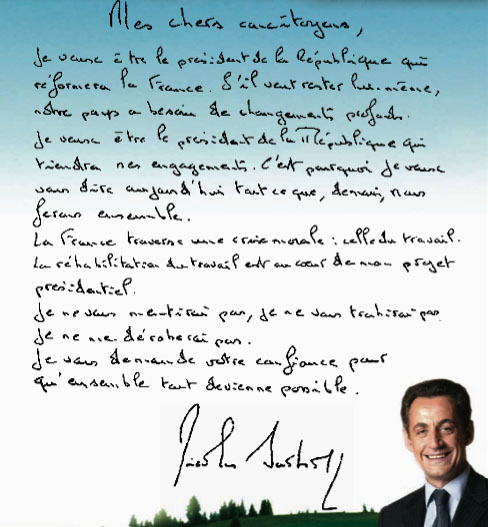 Mes chers concitoyens,
Je veux être le président de la République qui
réformera la France. S'il veut rester lui-même,
notre pays a besoin de changements profonds.
Je veux être le président de la République qui
tiendra ses engagements. C'est pourquoi je veux
vous dire aujourd'hui tout ce que, demain, nous
ferons ensemble.
La France traverse une crise morale : celle du travail.
La réhabilitation du travail est au cœur de mon projet
présidentiel.
Je ne vous mentirai pas, je ne vous trahirai pas
Je ne me déroberai pas.
Je vous demande votre confiance pour
qu'ensemble tout devienne possible.
Nicolas Sarkozy